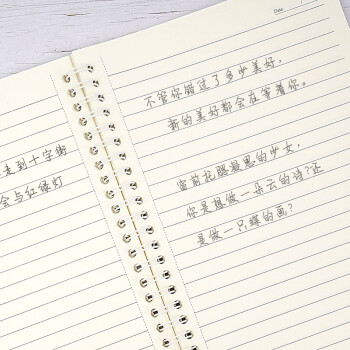 走到十字街
会与红绿灯
Date
不管你错过了多少美好,
新的美好都会在等着你。
窗前托腮凝思的少女,
你是想做一朵云的诗?还
是做一只蝶的画?